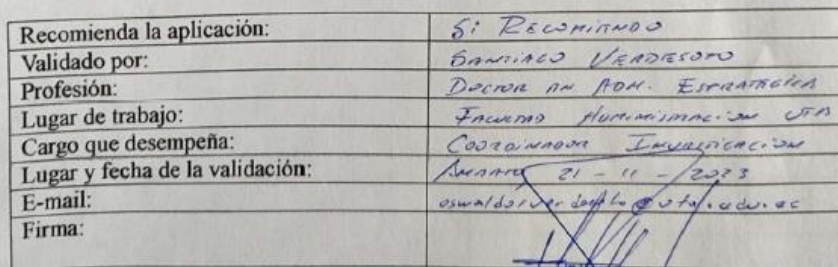 Recomienda la aplicación: Si Recomiendo
Validado por: Santiago Verdesoto
Profesión: Doctor en Adm. Estratégica
Lugar de trabajo: Facultad Administración UTA
Cargo que desempeña: Coordinador Investigación
Lugar y fecha de la validación: Ambato 21 - 11 - 2023
E-mail:
Firma: